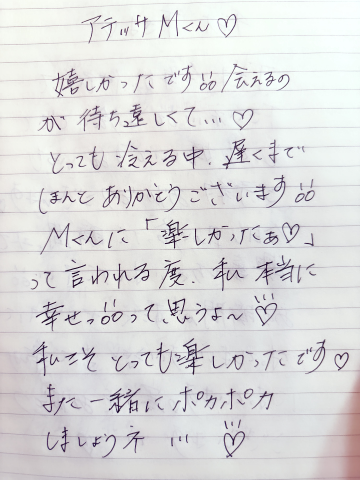 アテッサ Mくん♡
嬉しかったです!! 会えるの
が 待ち遠しくて…♡
とっても 冷える中、遅くまで
ほんと ありがとうございます!!
Mくんに「楽しかったぁ♡」
って 言われる度、私 本当に
幸せっ!!って 思うよ〜♡
私こそ とっても楽しかったです♡
また 一緒に ポカポカ
しましょうネ … ♡